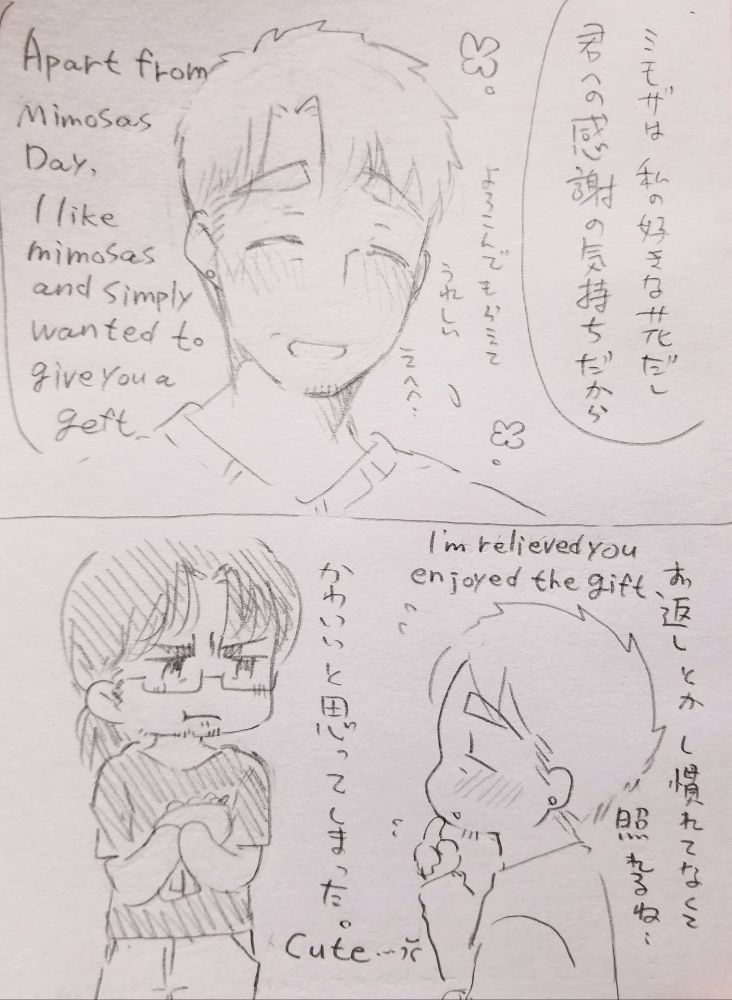 ミモザは私の好きな花だし
君への感謝の気持ちだから
Apart from
Mimosas
Day,
I like
mimosas
and simply
wanted to
give you a
geft
よろこんでもらえて
うれしい
えへへ…
I'm relieved you
enjoyed the gift
お返しとかし慣れてなくて
照れるね…
かわいいと思ってしまった。
Cute…